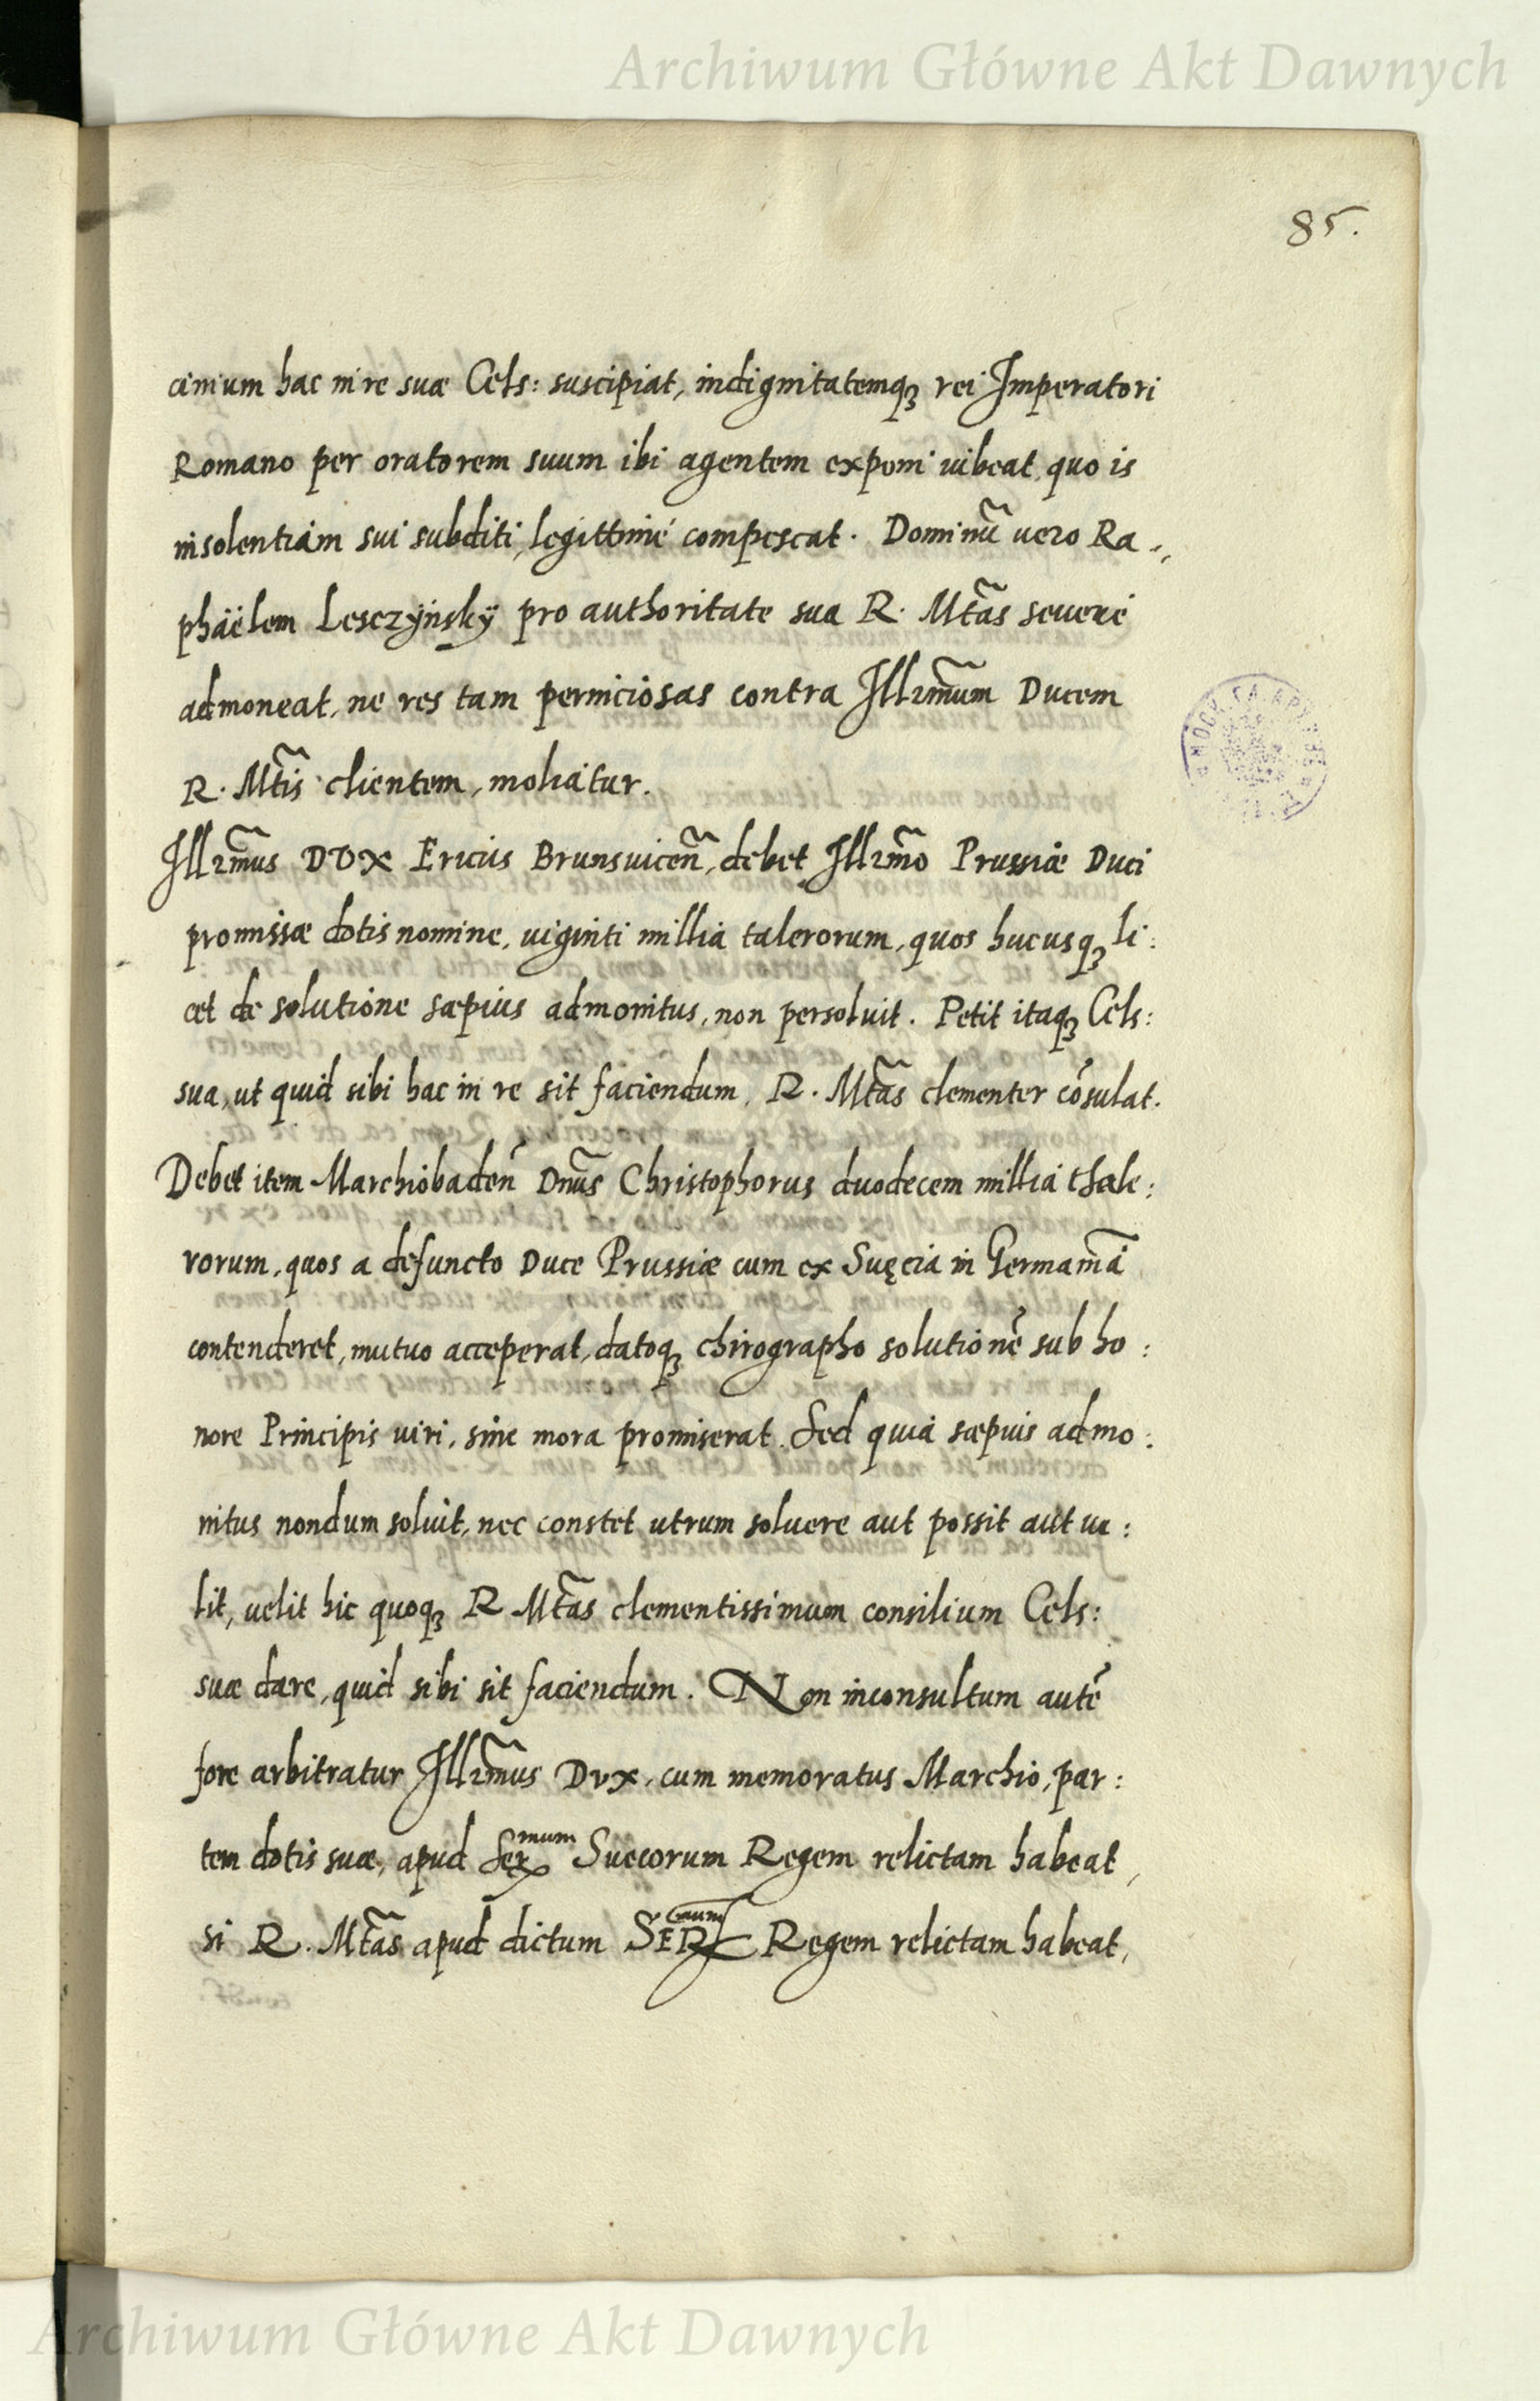 Archiwum Główne Akt Dawnych
85.
cinium hac in re suæ Cels: suscipiat, indignitatemqꝫ rei Imperatori
Romano per oratorem suum ibi agentem exponi iubeat, quo is
insolentiam sui subditi, legittimé compescat. Dominũ uero Ra„
phäëlem Lesczÿńskÿ pro authoritate sua R. Mtãs seueré
admoneat, ne res tam perniciosas contra Illrm̃um Ducem
R. Mtĩs clientem, moliatur.
Illrm̃us DVX Ericus Brunsuiceñ, debet Illrm̃o Prussiæ Duci
promissæ dotis nomine, uiginti millia talerorum, quos hucusqꝫ li:
cet de solutione sæpius admonitus, non persoluit. Petit itaqꝫ Cels:
sua, ut quid sibi hac in re sit faciendum, R. Mtãs clementer cõsulat.
Debet item Marchiobadeñ Dnũs Christophorus duodecem millia thale:
rorum, quos a defuncto Duce Prussiæ cum ex Suęcia in Germaniã
contenderet, mutuo acceperat, datoqꝫ chirographo solutionẽ sub ho:
nore Principis uiri, sine mora promiserat. Sed quia sæpius admo:
nitus nondum soluit, nec constet utrum soluere aut possit aut ue:
lit, uelit hic quoqꝫ R Mtãs clementissimum consilium Cels:
suæ dare, quid sibi sit faciendum. Non inconsultum autẽ
fore arbitratur Illrm̃us Dvx, cum memoratus Marchio, par:
tem dotis suæ, apud Serᵐᵘᵐ Suecorum Regem relictam habeat,
si R. Mtãs apud dictum SERᵐᵘᵐ Regem relictam habeat,
Archiwum Główne Akt Dawnych